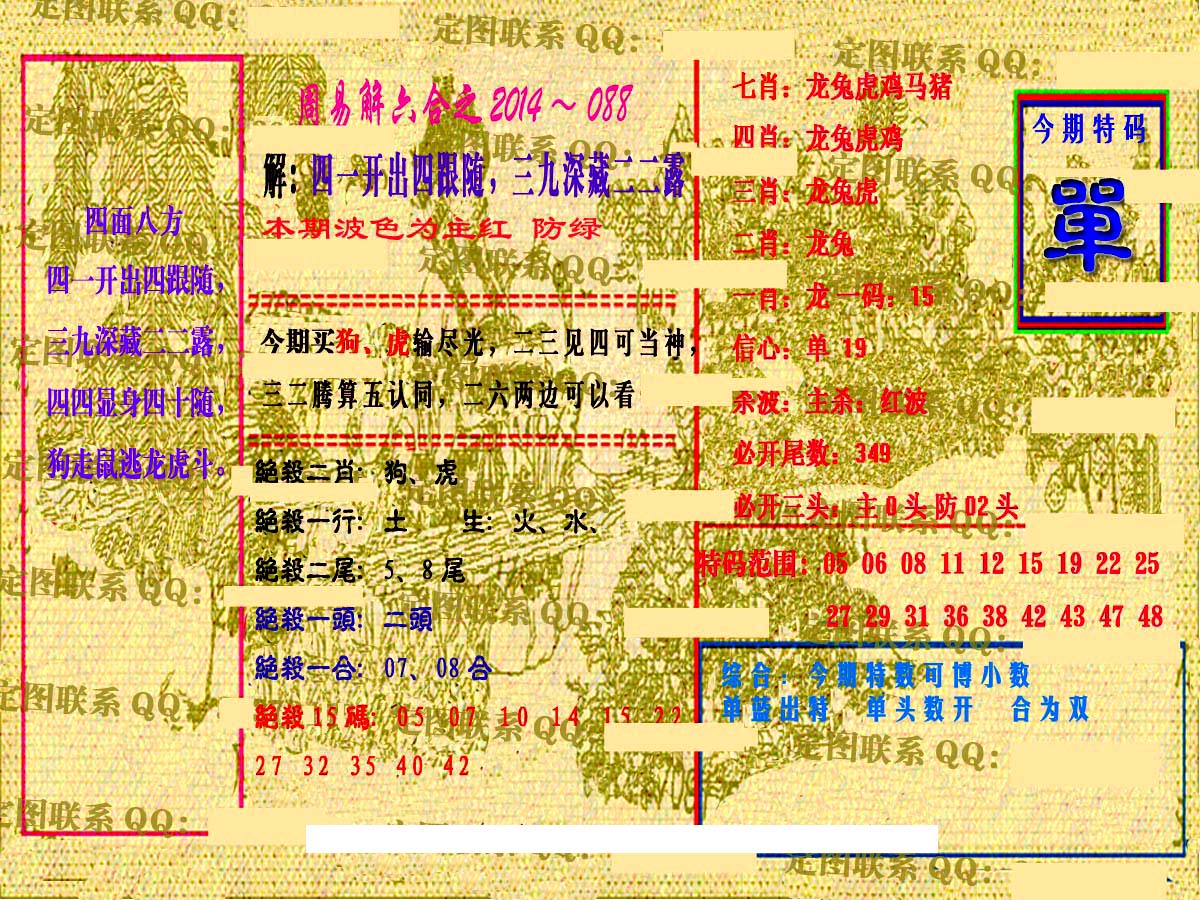 周易解六合之 2014～088
四面八方
四一开出四跟随，
三九深藏二二露，
四四显身四十随，
狗走鼠逃龙虎斗。
解：四一开出四跟随，三九深藏二二露
本期波色为主红 防绿
今期买狗、虎输尽光，二三见四可当神，
三二腾算五认同，二六两边可以看
絕殺二肖：狗、虎
絕殺一行：土 生：火、水、
絕殺二尾：5、8尾
絕殺一頭：二頭
絕殺一合：07、08合
絕殺15碼：05 07 10 14 15 22
27 32 35 40 42
七肖：龙兔虎鸡马猪
四肖：龙兔虎鸡
三肖：龙兔虎
二肖：龙兔
一肖：龙 一码：15
信心：单 19
杀波：主杀：红波
必开尾数：349
必开三头：主 0 头 防 02 头
特码范围：05 06 08 11 12 15 19 22 25
27 29 31 36 38 42 43 47 48
今期特码
單
综合：今期特数可博小数
单蓝出特 单头数开 合为双
定图联系 QQ：
定图联系 QQ：
定图联系 QQ：
定图联系 QQ：
定图联系 QQ：
定图联系 QQ：
定图联系 QQ：
定图联系 QQ：
定图联系 QQ：
定图联系 QQ：
定图联系 QQ：
定图联系 QQ：